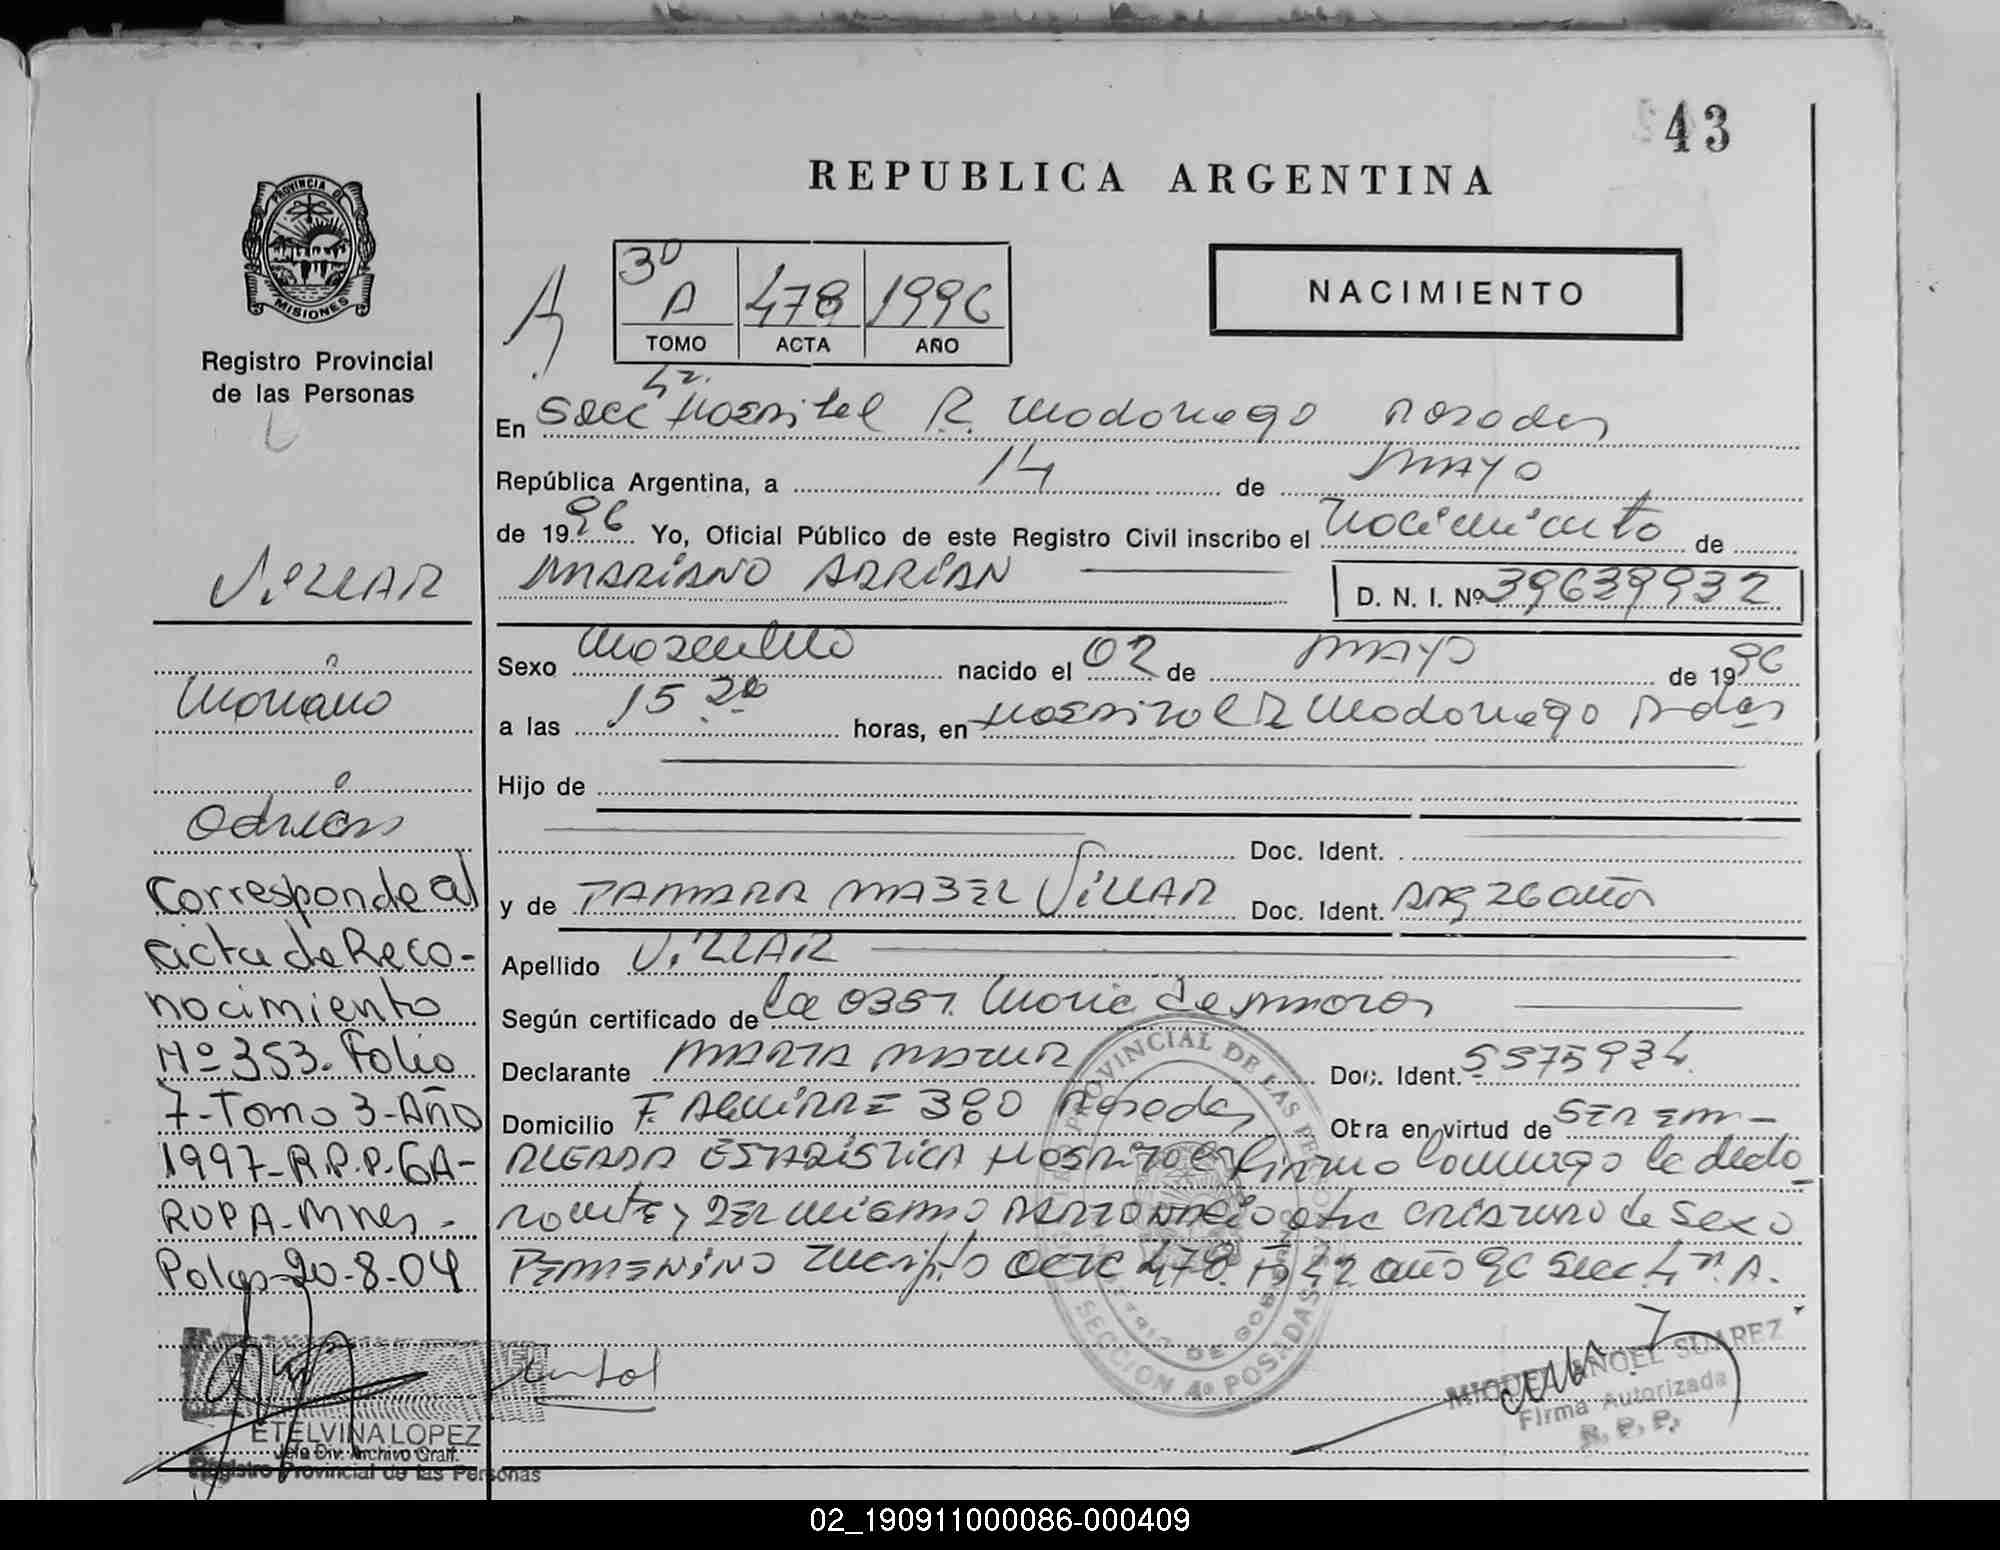 43
REPUBLICA ARGENTINA
PROVINCIA DE
MISIONES
Registro Provincial
de las Personas
3º
A 478 1996
TOMO ACTA AÑO
NACIMIENTO
En Secc 4ª. Hospital R. Madariaga Posadas
República Argentina, a 14 de MAYO
de 1996 Yo, Oficial Público de este Registro Civil inscribo el Nacimiento de
MARIANO ADRIAN D. N. I. Nº 39639932
Sexo Masculino nacido el 02 de MAYO de 1996
a las 15 20 horas, en Hospital R Madariaga Pdas
Hijo de
Doc. Ident.
y de TAMARA MABEL VILLAR Doc. Ident. ARG 26 años
Apellido VILLAR
Según certificado de la Obst. Maria de
Declarante MARTA Doc. Ident. 5575934
Domicilio F. AGUIRRE 380 Posadas Obra en virtud de SER EM-
PLEADA ESTADISTICA Hospital firma conmigo la decla
rante y DEL mismo PARTO NACIO otra criatura de sexo
FEMENINO inscripto acta 478 Fº 42 año 96 Secc. 4ª. A.
VILLAR
Mariano
Adrian
Corresponde al
acta de Reco-
nocimiento
Nº 353. Folio
7-Tomo 3-Año
1997-R.P.P. GA-
RUPA-Mnes-
Pdas-20-8-04
ETELVINA LOPEZ
Jefa Div. Archivo Graff.
Registro Provincial de las Personas
PROVINCIAL DE LAS PERSONAS
SECCION 4º POSADAS
DE GOBIERNO
MIGUEL ANGEL SUAREZ
Firma Autorizada
R. P. P.
02_190911000086-000409